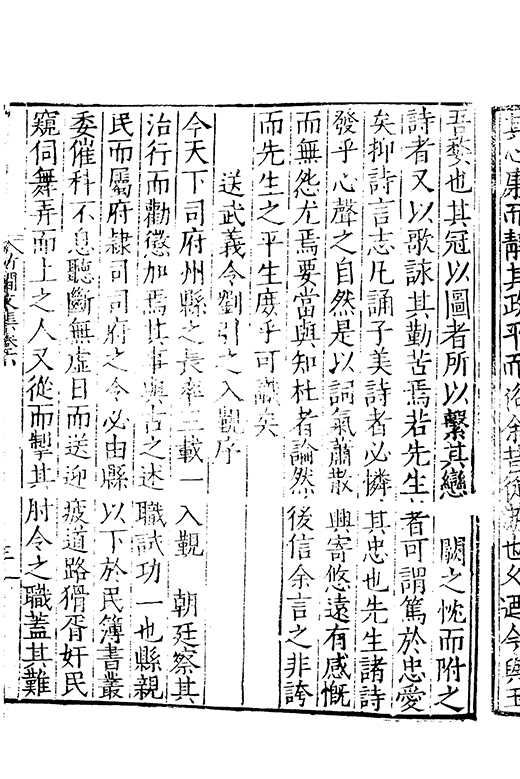 其心康而靜其政平而
余昔從
也父
今與
吾婺也其冠以圖者所以繫其戀 闕之忱而附之
詩者又以歌詠其勤苦焉若先生者可謂篤於忠愛
矣抑詩言志凡誦子美詩者必憐其忠也先生諸詩
發乎心聲之自然是以詞氣蕭散興寄悠遠有感慨
而無怨尤焉要當與知杜者論然後信余言之非誇
而先生之平生庶乎可識矣
送武義令劉引之入覲序
今天下司府州縣之長率三載一入覲 朝廷察其
治行而勸懲加焉其事與古之述職試功一也縣親
民而屬府隷司司府之令必由縣以下於民簿書叢
委催科不息聽斷無虚日而送迎疲道路猾胥奸民
窺伺舞弄而上之人又從而掣其肘令之職蓋其難
竹澗文集卷六